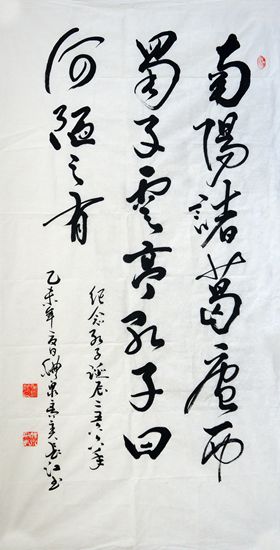 南陽諸葛廬西
蜀子雲亭孔子曰
何陋之有
紀念孔子誕辰二五六六年
乙未年